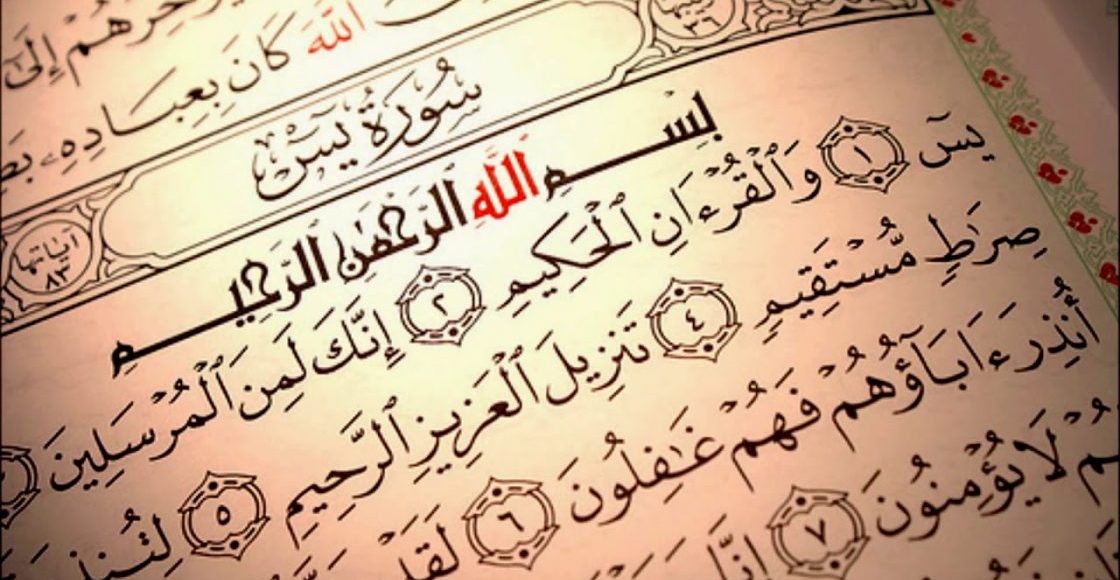 خرهم إلى
ٱلله كَانَ بِعِبَادِهِۦ
٣٦
سُورَةُ يسٓ
ءَايَاتُهَا ٨٣
بِسْمِ ٱللَّهِ ٱلرَّحْمَٰنِ ٱلرَّحِيمِ
يسٓ ١ وَٱلْقُرْءَانِ ٱلْحَكِيمِ ٢ إِنَّكَ لَمِنَ ٱلْمُرْسَلِينَ
صِرَٰطٍ مُّسْتَقِيمٍ ٤ تَنزِيلَ ٱلْعَزِيزِ ٱلرَّحِيمِ ٥
أُنذِرَ ءَابَآؤُهُمْ فَهُمْ غَٰفِلُونَ ٦
لَا يُؤْمِنُونَ ٧ إِنَّا